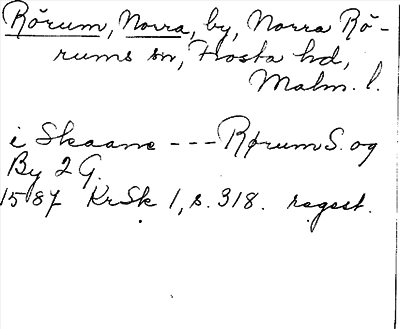 Rörum, Norra, by, Norra Rö-
rums sn, Frosta hd,
Malm. l.
i Skaane --- Rørum S. og
By 2 G.
1587 KrSk 1, s. 318. regest.